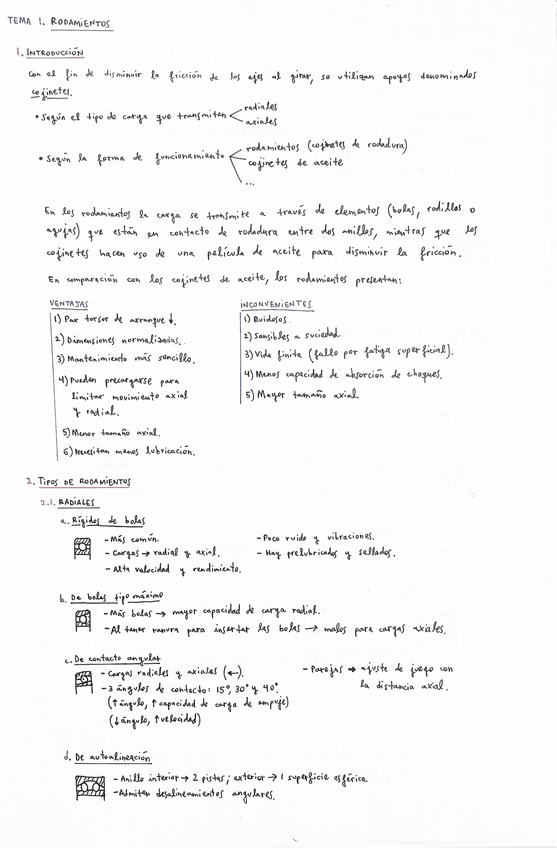 TEMA 1. RODAMIENTOS
1. INTRODUCCIÓN
Con el fin de disminuir la fricción de los ejes al girar, se utilizan apoyos denominados
cojinetes.
• Según el tipo de carga que transmiten
radiales
axiales
• Según la forma de funcionamiento
rodamientos (cojinetes de rodadura)
cojinetes de aceite
...
En los rodamientos la carga se transmite a través de elementos (bolas, rodillos o
agujas) que están en contacto de rodadura entre dos anillos, mientras que los
cojinetes hacen uso de una película de aceite para disminuir la fricción.
En comparación con los cojinetes de aceite, los rodamientos presentan:
VENTAJAS
1) Par torsor de arranque ↓.
2) Dimensiones normalizadas.
3) Mantenimiento más sencillo.
4) Pueden precargarse para
limitar movimiento axial
y radial.
5) Menor tamaño axial.
6) Necesitan menos lubricación.
INCONVENIENTES
1) Ruidosos.
2) Sensibles a suciedad.
3) Vida finita (fallo por fatiga superficial).
4) Menos capacidad de absorción de choques.
5) Mayor tamaño axial.
2. TIPOS DE RODAMIENTOS
2.1. RADIALES
a. Rígidos de bolas
- Más común.
- Cargas → radial y axial.
- Alta velocidad y rendimiento.
- Poco ruido y vibraciones.
- Hay prelubricados y sellados.
b. De bolas tipo máximo
- Más bolas → mayor capacidad de carga radial.
- Al tener ranura para insertar las bolas → malos para cargas axiales.
c. De contacto angular
- Cargas radiales y axiales (←).
- 3 ángulos de contacto: 15°, 30° y 40°.
(↑ángulo, ↑ capacidad de carga de empuje)
(↓ángulo, ↑velocidad)
- Parejas → ajuste de juego con
la distancia axial.
d. De autoalineación
- Anillo interior → 2 pistas; exterior → 1 superficie esférica.
- Admiten desalineamientos angulares.